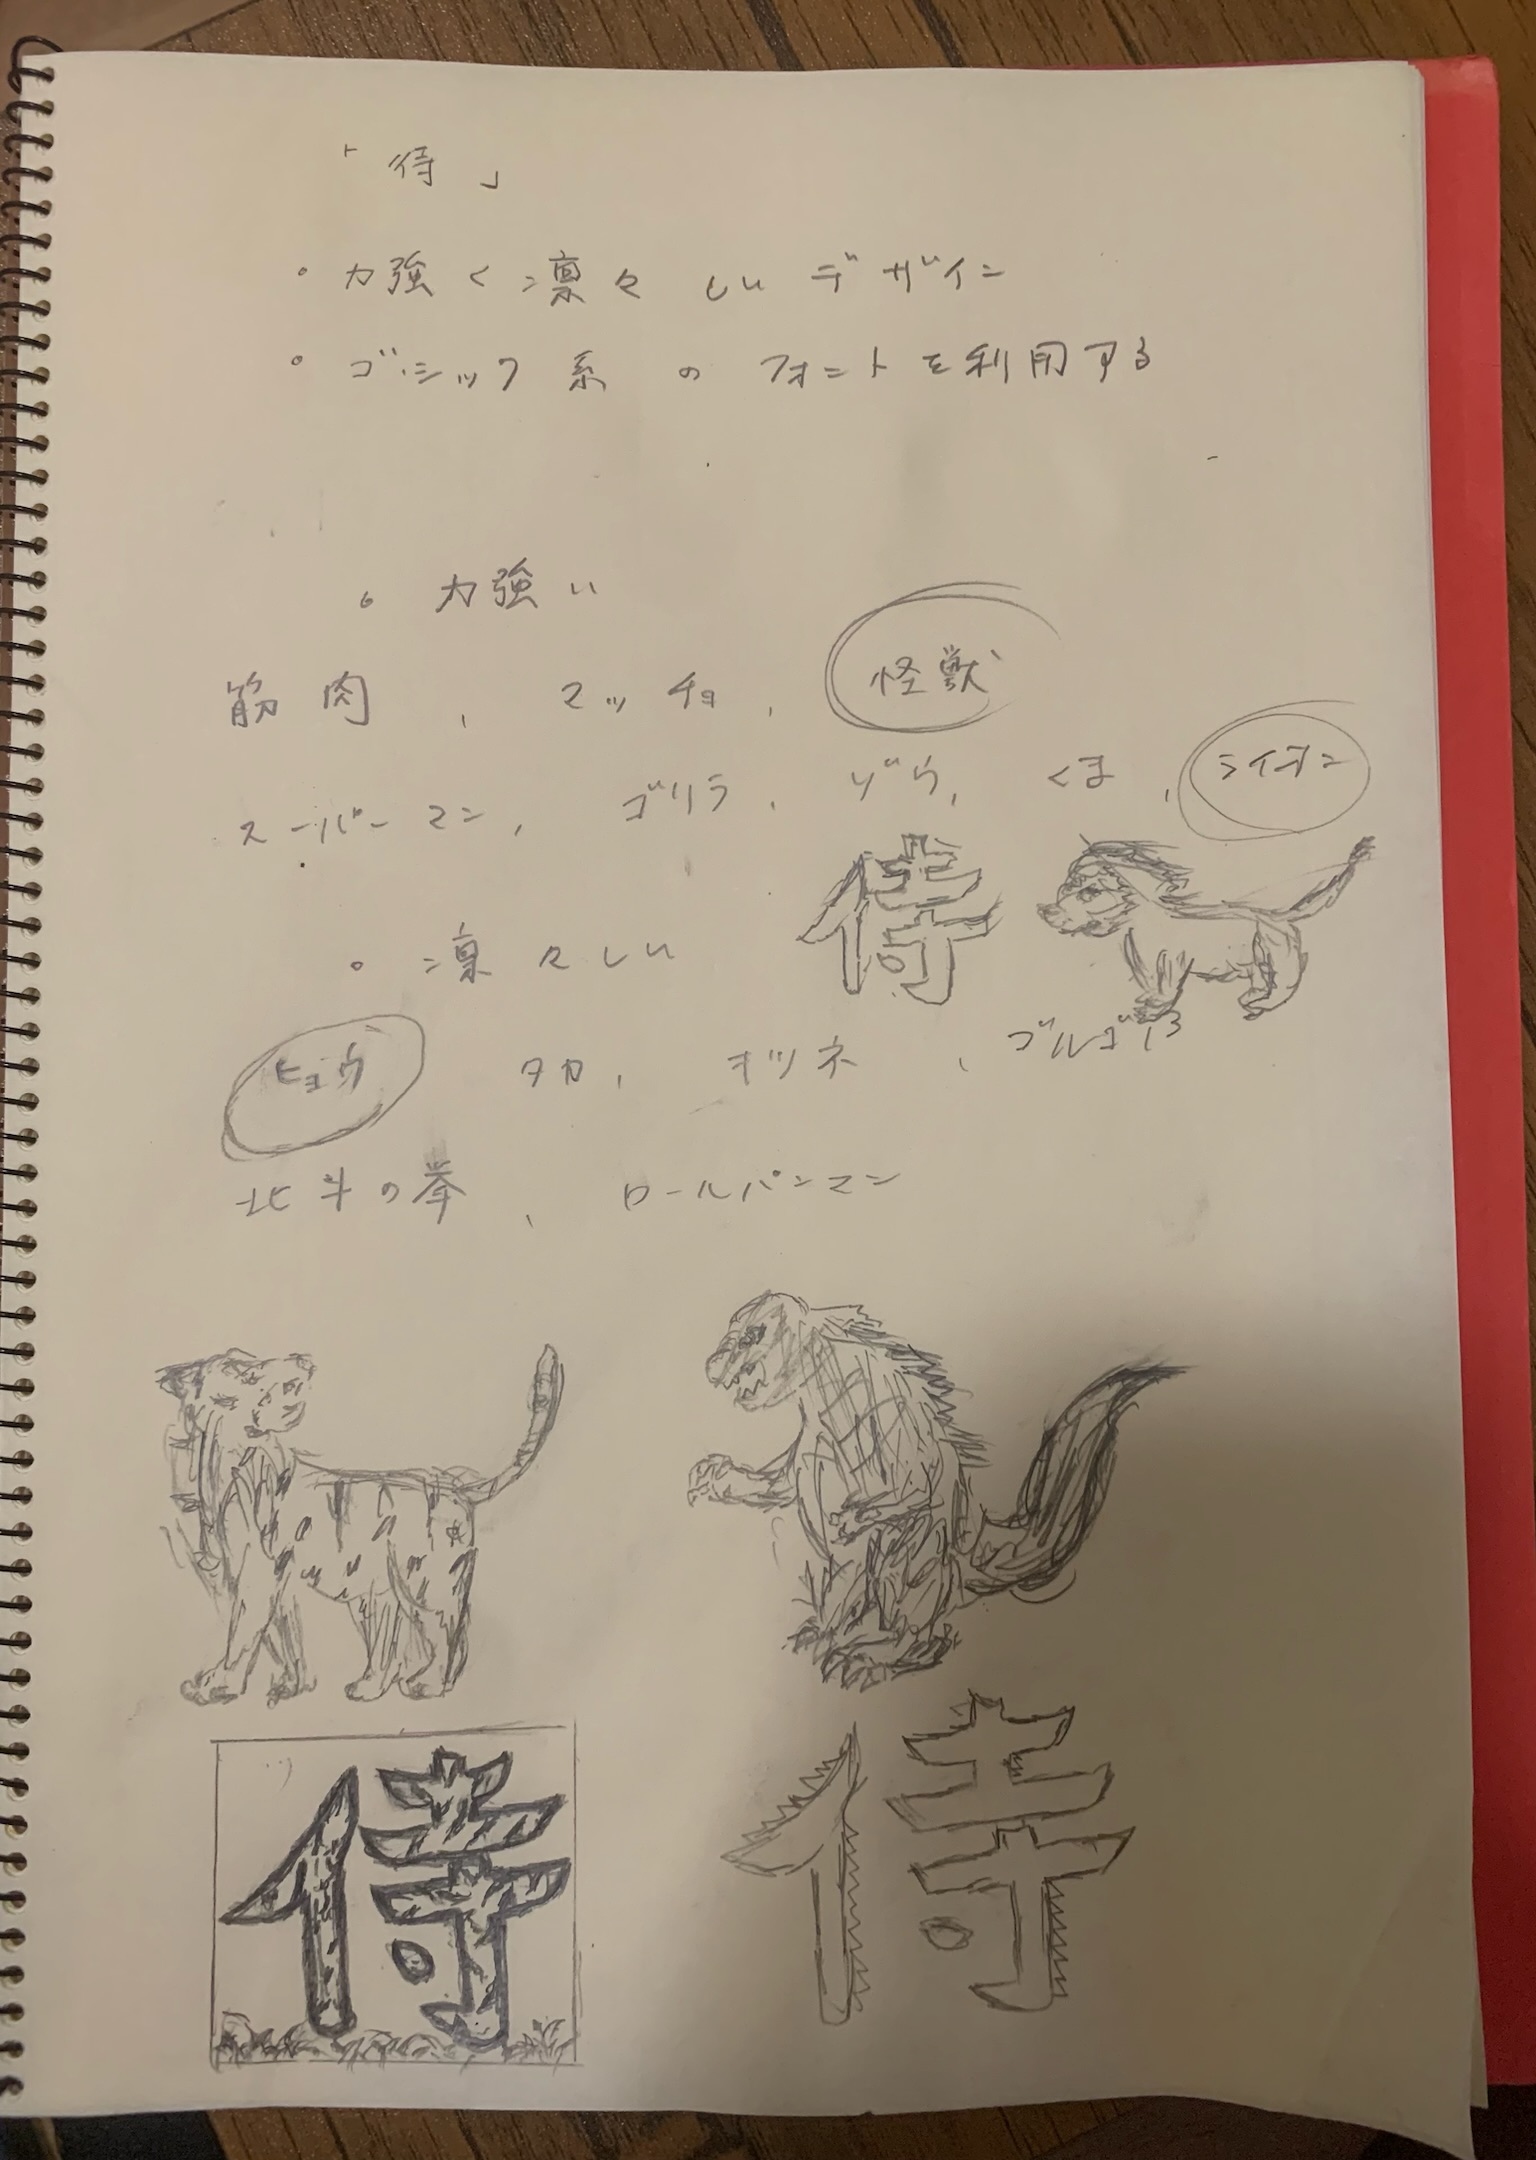 「侍」
・力強く凛々しいデザイン
・ゴシック系のフォントを利用する
・力強い
筋肉、マッチョ、怪獣
スーパーマン、ゴリラ、ゾウ、くま、ライオン
侍
・凛々しい
ヒョウ タカ、キツネ、ゴルゴ13
北斗の拳、ロールパンマン
侍 侍